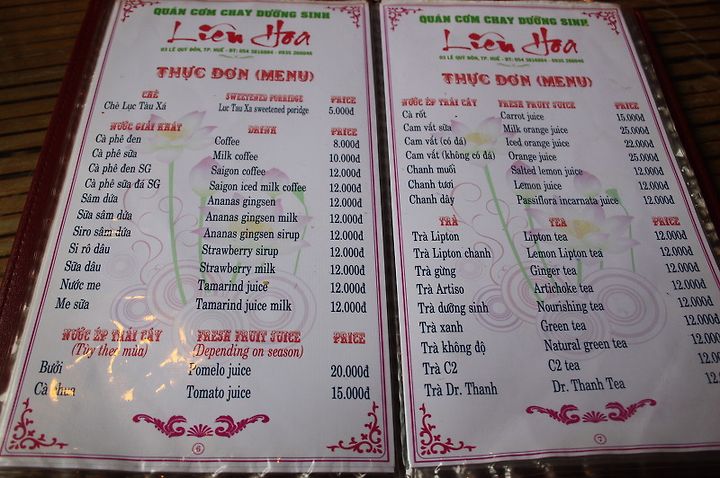 QUÁN CƠM CHAY DƯỠNG SINH
Liên Hoa
03 LÊ QUÝ ĐÔN, TP. HUẾ - ĐT: 054 3816884
THỰC ĐƠN (MENU)
CHÈ SWEETENED PORRIDGE PRICE
Chè Lục Tàu Xá Luc Tau Xa sweetened poridge 5.000đ
NƯỚC GIẢI KHÁT DRINK PRICE
Cà phê đen Coffee 8.000đ
Cà phê sữa Milk coffee 10.000đ
Cà phê đen SG Saigon coffee 12.000đ
Cà phê sữa đá SG Saigon iced milk coffee 12.000đ
Sâm dứa Ananas gingsen 12.000đ
Sữa sâm dứa Ananas gingsen milk 12.000đ
Siro sâm dứa Ananas gingsen sirup 12.000đ
Si rô dâu Strawberry sirup 12.000đ
Sữa dâu Strawberry milk 12.000đ
Nước me Tamarind juice 12.000đ
Me sữa Tamarind juice milk 12.000đ
NƯỚC ÉP TRÁI CÂY FRESH FRUIT JUICE PRICE
(Tùy theo mùa) (Depending on season)
Bưởi Pomelo juice 20.000đ
Cà chua Tomato juice 15.000đ
6
QUÁN CƠM CHAY DƯỠNG SINH
Liên Hoa
03 LÊ QUÝ ĐÔN, TP. HUẾ - ĐT: 054 3816884
THỰC ĐƠN (MENU)
NƯỚC ÉP TRÁI CÂY FRESH FRUIT JUICE PRICE
Cà rốt Carrot juice 15.000đ
Cam vắt sữa Milk orange juice 25.000đ
Cam vắt (có đá) Iced orange juice 22.000đ
Cam vắt (không có đá) Orange juice 25.000đ
Chanh muối Salted lemon juice 12.000đ
Chanh tươi Lemon juice 12.000đ
Chanh dây Passiflora incarnata juice 12.000đ
TRÀ TEA PRICE
Trà Lipton Lipton tea 12.000đ
Trà Lipton chanh Lemon Lipton tea 12.000đ
Trà gừng Ginger tea 12.000đ
Trà Artiso Artichoke tea 12.000đ
Trà dưỡng sinh Nourishing tea 12.000đ
Trà xanh Green tea 12.000đ
Trà không độ Natural green tea 12.000
Trà C2 C2 tea 12.00
Trà Dr. Thanh Dr. Thanh Tea 12.0
7